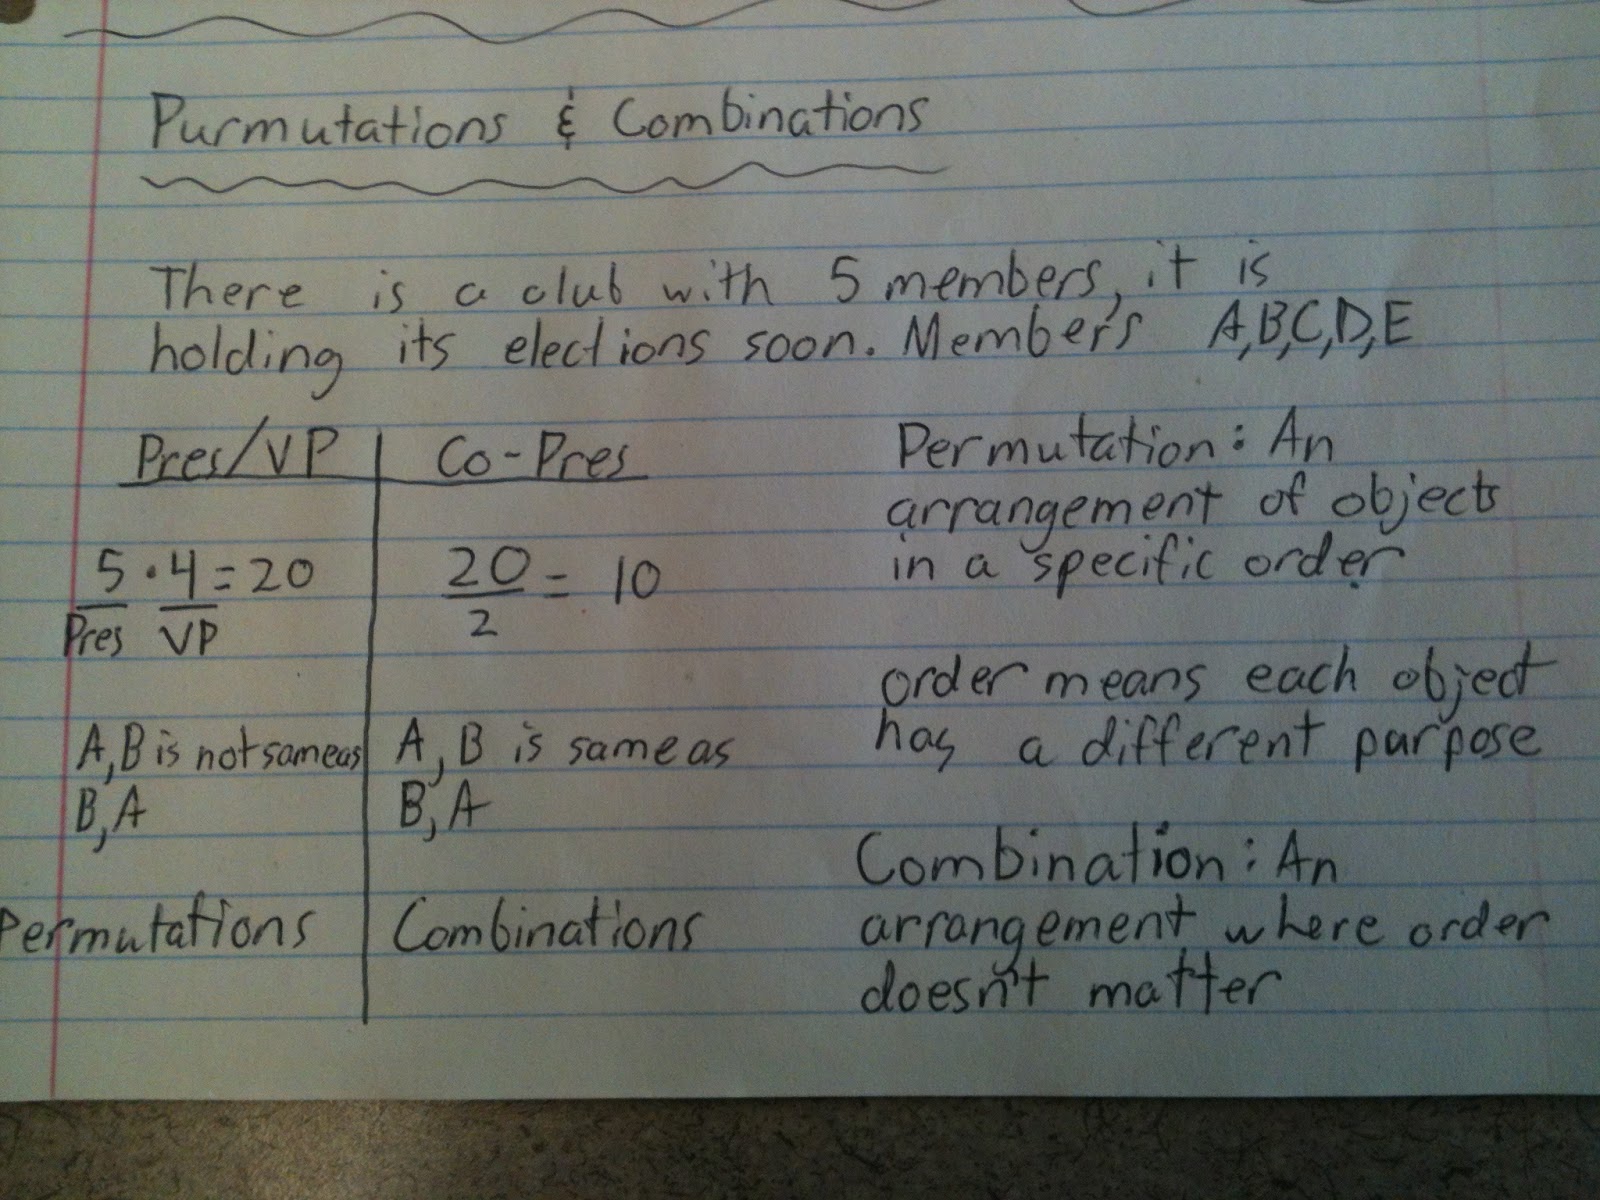 Purmutations & Combinations
There is a club with 5 members, it is
holding its elections soon. Members A,B,C,D,E
Pres/VP
5 · 4 = 20
Pres VP
A,B is not same as
B,A
Permutations
Co-Pres
20/2 = 10
A, B is same as
B, A
Combinations
Permutation: An
arrangement of objects
in a specific order
order means each object
has a different purpose
Combination: An
arrangement where order
doesn't matter